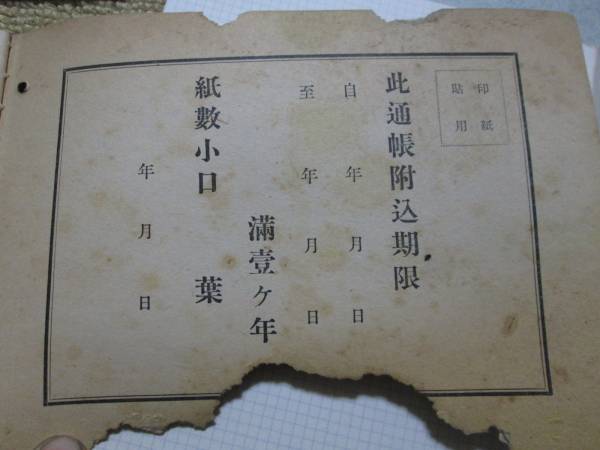 印紙
貼用
此通帳附込期限
自年月日
至年月日
滿壹ケ年
紙數小口葉
年月日